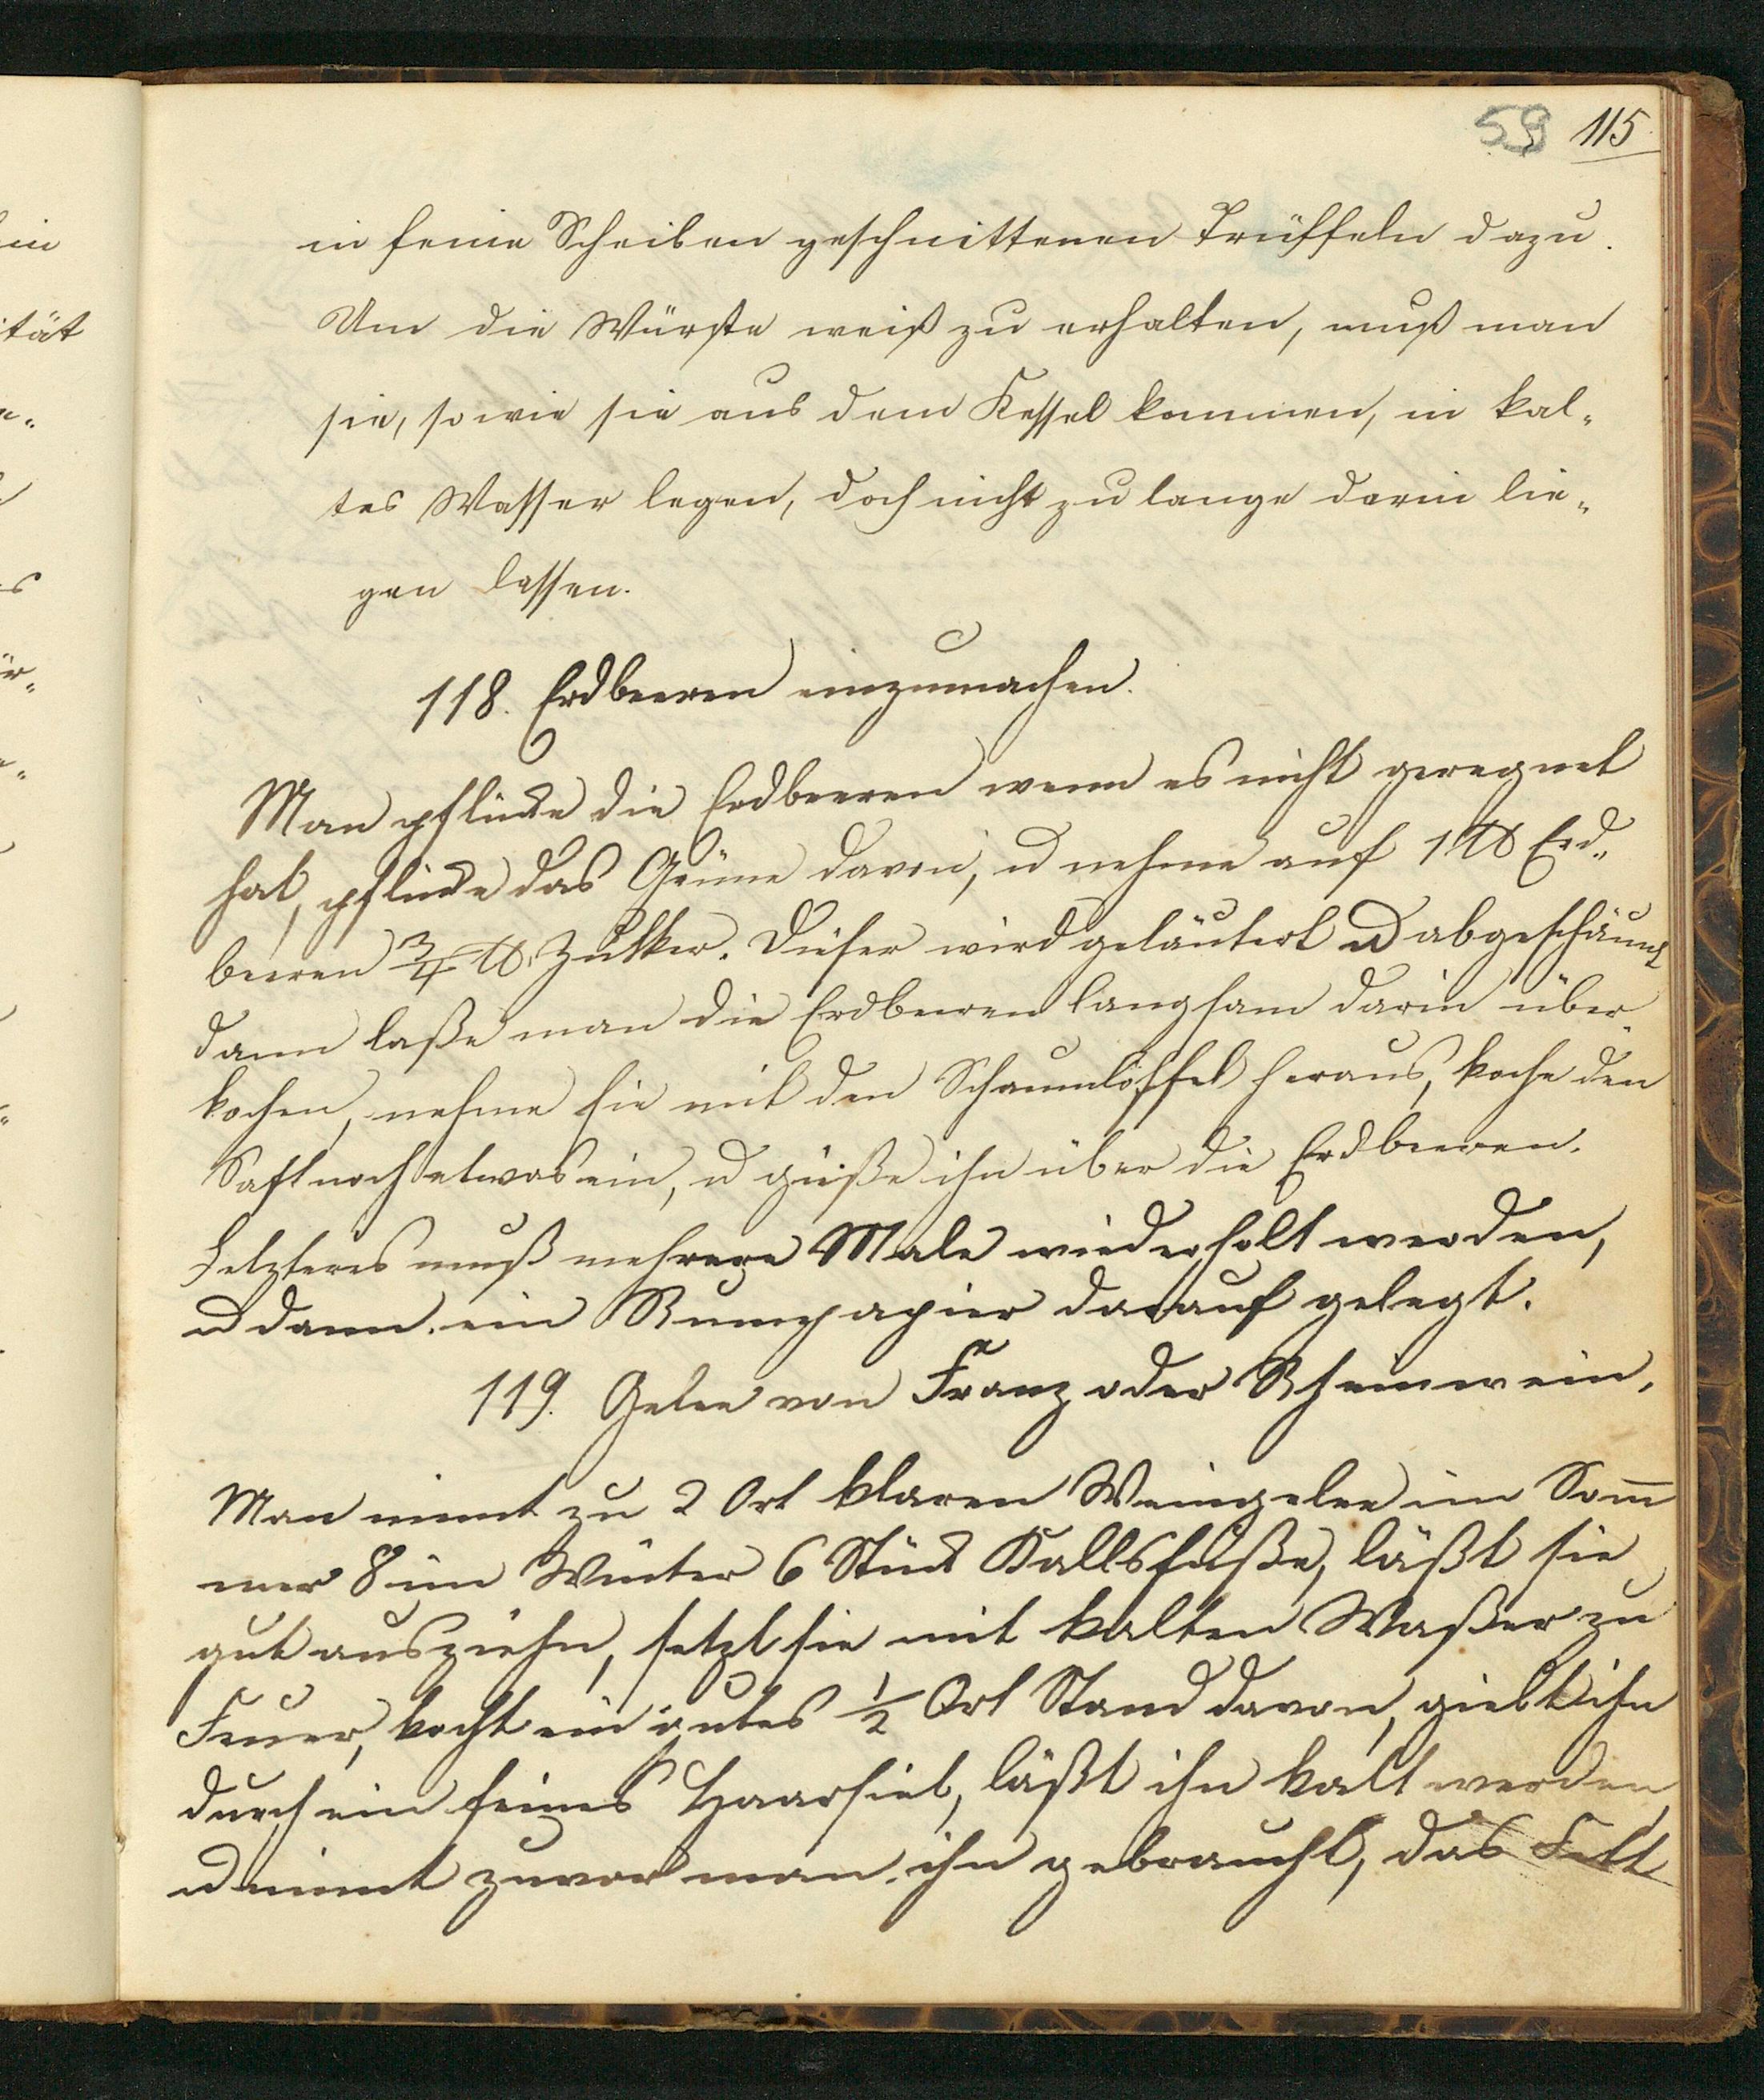 59 115
in feine Scheiben geschnittenen Trüffeln dazu.
Um die Würste weiß zu erhalten, muß man
sie, so wie sie aus dem Kessel kommen, in kal-
tes Wasser legen, doch nicht zu lange darin lie-
gen lassen.
118. Erdbeeren einzumachen.
Man pflücke die Erdbeeren wenn es nicht geregnet
hat, pflücke das Grüne davon, u nehme auf 1 ℔ Erd-
beeren 3/4 ℔. Zukker. Dieser wird geläutert u abgeschäumt
dann laße man die Erdbeeren langsam darin über-
kochen, nehme sie mit den Schaumlöffel heraus, koche den
Saft noch etwas ein, u gieße ihn über die Erdbeeren.
Letzteres muß mehrere Male wiederholt werden,
u dann ein Rumpapier darauf gelegt.
119. Gelee von Franz oder Rheinwein.
Man nimt zu 2 Ort klaren Weingelee im Som̅
mer 8 im Winter 6 Stück Kalbsfüße, läßt sie
gut ausziehn, setzt sie mit kalten Waßer zu
Feuer, kocht ein gutes 1/2 Ort Stand davon, giebt ihn
durch ein feines Haarsieb, läßt ihn kalt werden
u nimt zuvor man ihn gebraucht, das Fett
in
ität
es
ür-